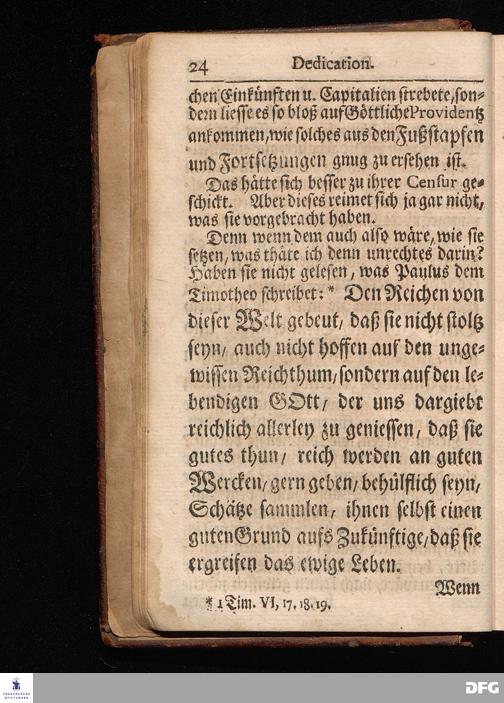 24 Dedication.
chen Einkünften u. Capitalien strebete, son-
dern liesse es so bloß auf Göttliche Providentz
ankommen, wie solches aus den Fußstapfen
und Fortsetzungen gnug zu ersehen ist.
Das hätte sich besser zu ihrer Censur ge-
schickt. Aber dieses reimet sich ja gar nicht,
was sie vorgebracht haben.
Denn wenn dem auch also wäre, wie sie
setzen, was thäte ich denn unrechtes darin?
Haben sie nicht gelesen, was Paulus dem
Timotheo schreibet: * Den Reichen von
dieser Welt gebeut, daß sie nicht stoltz
seyn, auch nicht hoffen auf den unge-
wissen Reichthum, sondern auf den le-
bendigen GOtt, der uns dargiebt
reichlich allerley zu geniessen, daß sie
gutes thun, reich werden an guten
Wercken, gern geben, behülflich seyn,
Schätze sammlen, ihnen selbst einen
guten Grund aufs Zukünftige, daß sie
ergreifen das ewige Leben.
Wenn
* 1 Tim. VI, 17. 18. 19.
FRANCKESCHE
STIFTUNGEN
DFG